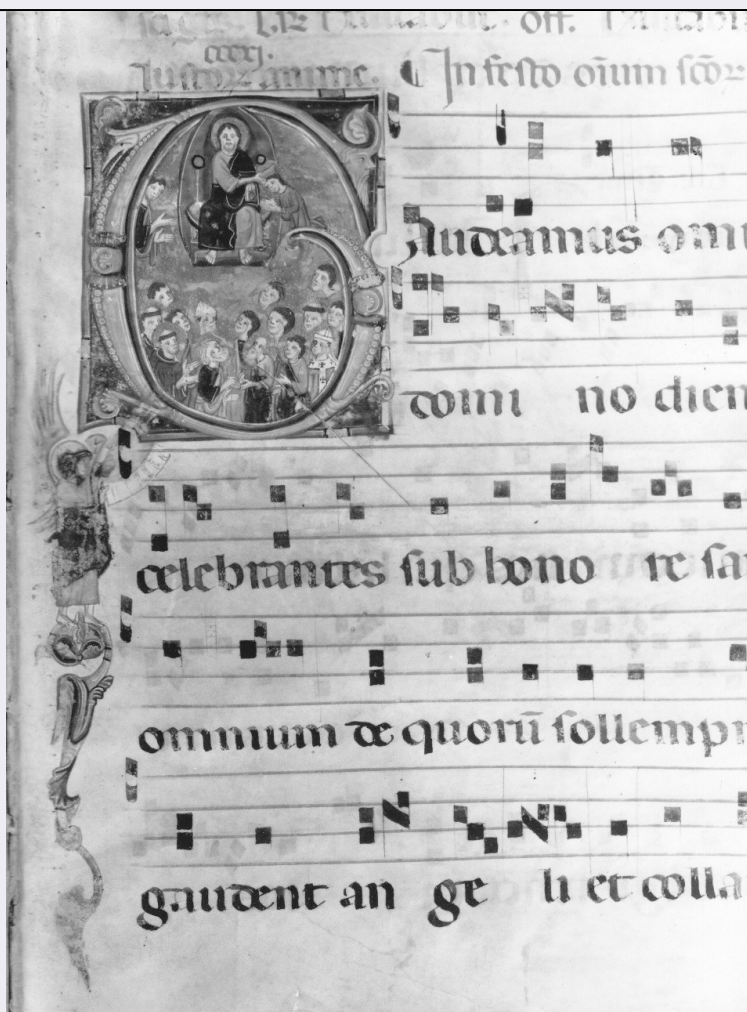 off.
ccccxj.
Justorz anime. In festo oı̄um sc̄oꝝ
Gaudeamus omni
domi no diem
celebrantes sub hono re san
omnium de quorū sollempn
gaudent an ge li et colla